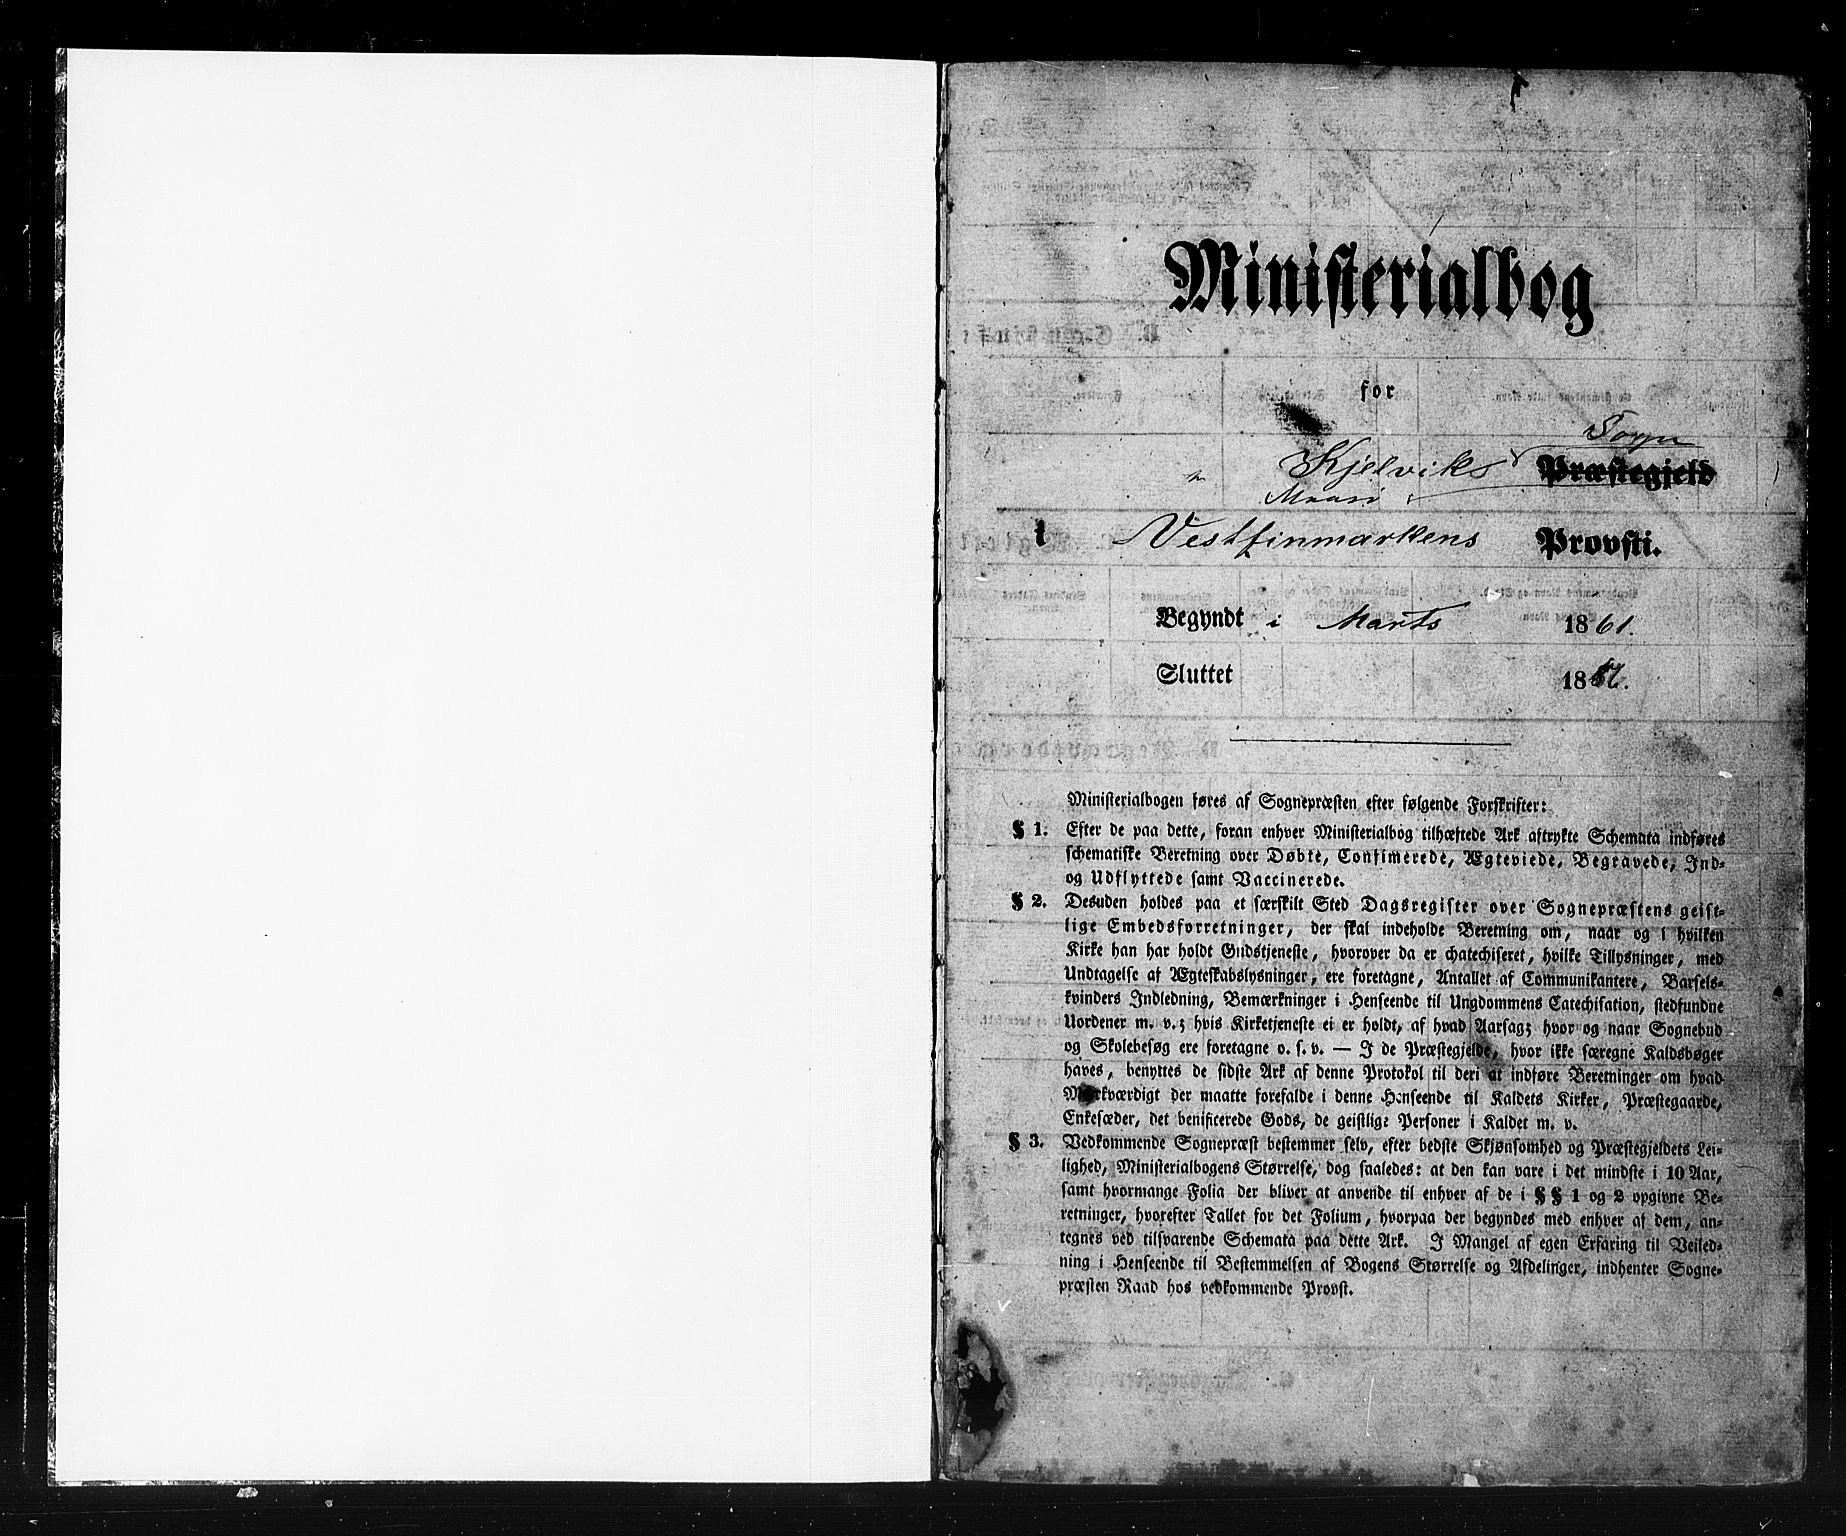 Ministerialbog
for
Sogn
Kjelviks Præstegjeld
Maasø
i Vestfinmarkens Provsti.
Begyndt i Marts 1861.
Sluttet 18
Ministerialbogen føres af Sognepræsten efter følgende Forskrifter:
§ 1. Efter de paa dette, foran enhver Ministerialbog tilhæftede Ark aftrykte Schemata indføres
schematiske Beretning over Døbte, Confirmerede, Ægteviede, Begravede, Ind-
og Udflyttede samt Vaccinerede.
§ 2. Desuden holdes paa et særskilt Sted Dagsregister over Sognepræstens geist-
lige Embedsforretninger, der skal indeholde Beretning om, naar og i hvilken
Kirke han har holdt Gudstjeneste, hvorover da er chatechiseret, hvilke Tillysninger, med
Undtagelse af Ægteskabslysninger, ere foretagne, Antallet af Communikantere, Barsels-
kvinders Indledning, Bemærkninger i Henseende til Ungdommens Catechisation, stedfundne
Uordener m. v.; hvis Kirketjeneste ei er holdt, af hvad Aarsag; hvor og naar Sognebud
og Skolebesøg ere foretagne o. s. v. — I de Præstegjelde, hvor ikke særegne Kaldsbøger
haves, benyttes de sidste Ark af denne Protokol til deri at indføre Beretninger om hvad
Mærkværdigt der maatte forefalde i denne Henseende til Kaldets Kirker, Præstegaarde,
Enkesæder, det benificerede Gods, de geistlige Personer i Kaldet m. v.
§ 3. Vedkommende Sognepræst bestemmer selv, efter bedste Skjønsomhed og Præstegjeldets Lei-
lighed, Ministerialbogens Størrelse, dog saaledes: at den kan vare i det mindste i 10 Aar,
samt hvormange Folia der bliver at anvende til enhver af de i § § 1 og 2 opgivne Be-
retninger, hvorefter Tallet for det Folium, hvorpaa der begyndes med enhver af dem, an-
tegnes ved tilsvarende Schemata paa dette Ark. I Mangel af egen Erfaring til Veiled-
ning i Henseende til Bestemmelsen af Bogens Størrelse og Afdelinger, indhenter Sogne-
præsten Raad hos vedkommende Provst.